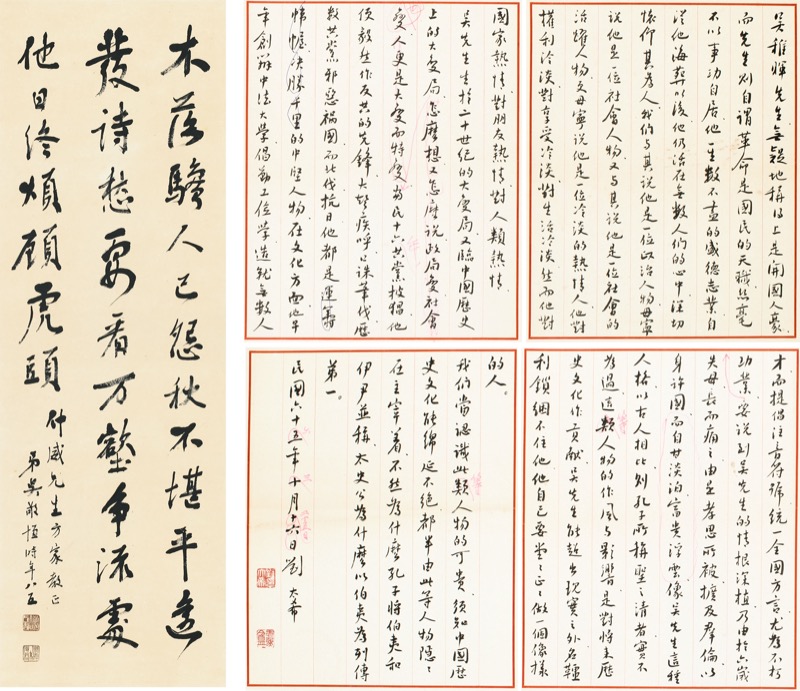 木落騷人已怨秋不堪平遠
發詩愁要看萬壑爭流處
他日終煩顧虎頭
仲威先生方家教正
弟吳敬恒時年八五
吳稚暉先生無疑地稱得上是開國人豪
而先生則自謂革命是國民的天職絲毫
不以事功自居他一生數不盡的盛德志業自
從他海葬以後他仍活在無數人們的心中深切
懷仰其為人我們與其說他是一位政治人物毋寧
說他是一位社會人物又與其說他是一位社會的
活躍人物又毋寧說他是一位冷淡的熱情人他對
權利冷淡對享受冷淡對生活冷淡然而他對
國家熱情對朋友熱情對人類熱情
吳先生生於二十世紀的大變局又臨中國歷史
上的大變局怎麼想又怎麼說政局變社會
變人更是大變而特變當民十六共黨披猖他
便毅然作反共的先鋒大聲疾呼口誅筆伐歷
數共黨邪惡禍國而北伐抗日他都是運籌
帷幄決勝千里的中堅人物在文化方面他早
年創辦中法大學倡勤工儉學造就無數人
才而提倡注音符號統一全國方言尤為不朽
功業要說到吳先生的情根深植乃由於六歲
失母長而痛之由是孝思所被擴及群倫以
身許國而自甘淡泊富貴浮雲像吳先生這種
人格以古人相比則孔子所稱聖之清者實不
為過這類人物的作風與影響是對將來歷
史文化作貢獻吳先生能超出現實之外名韁
利鎖綑不住他他自己要堂堂正正做一個像樣
的人。
我們當認識此類人物的可貴須知中國歷
史文化能綿延不絕都半由此等人物隱隱
在主宰着不然為什麼孔子將伯夷和
伊尹並稱太史公為什麼以伯夷為列傳
第一。
民國六十五年十月十六日劉太希